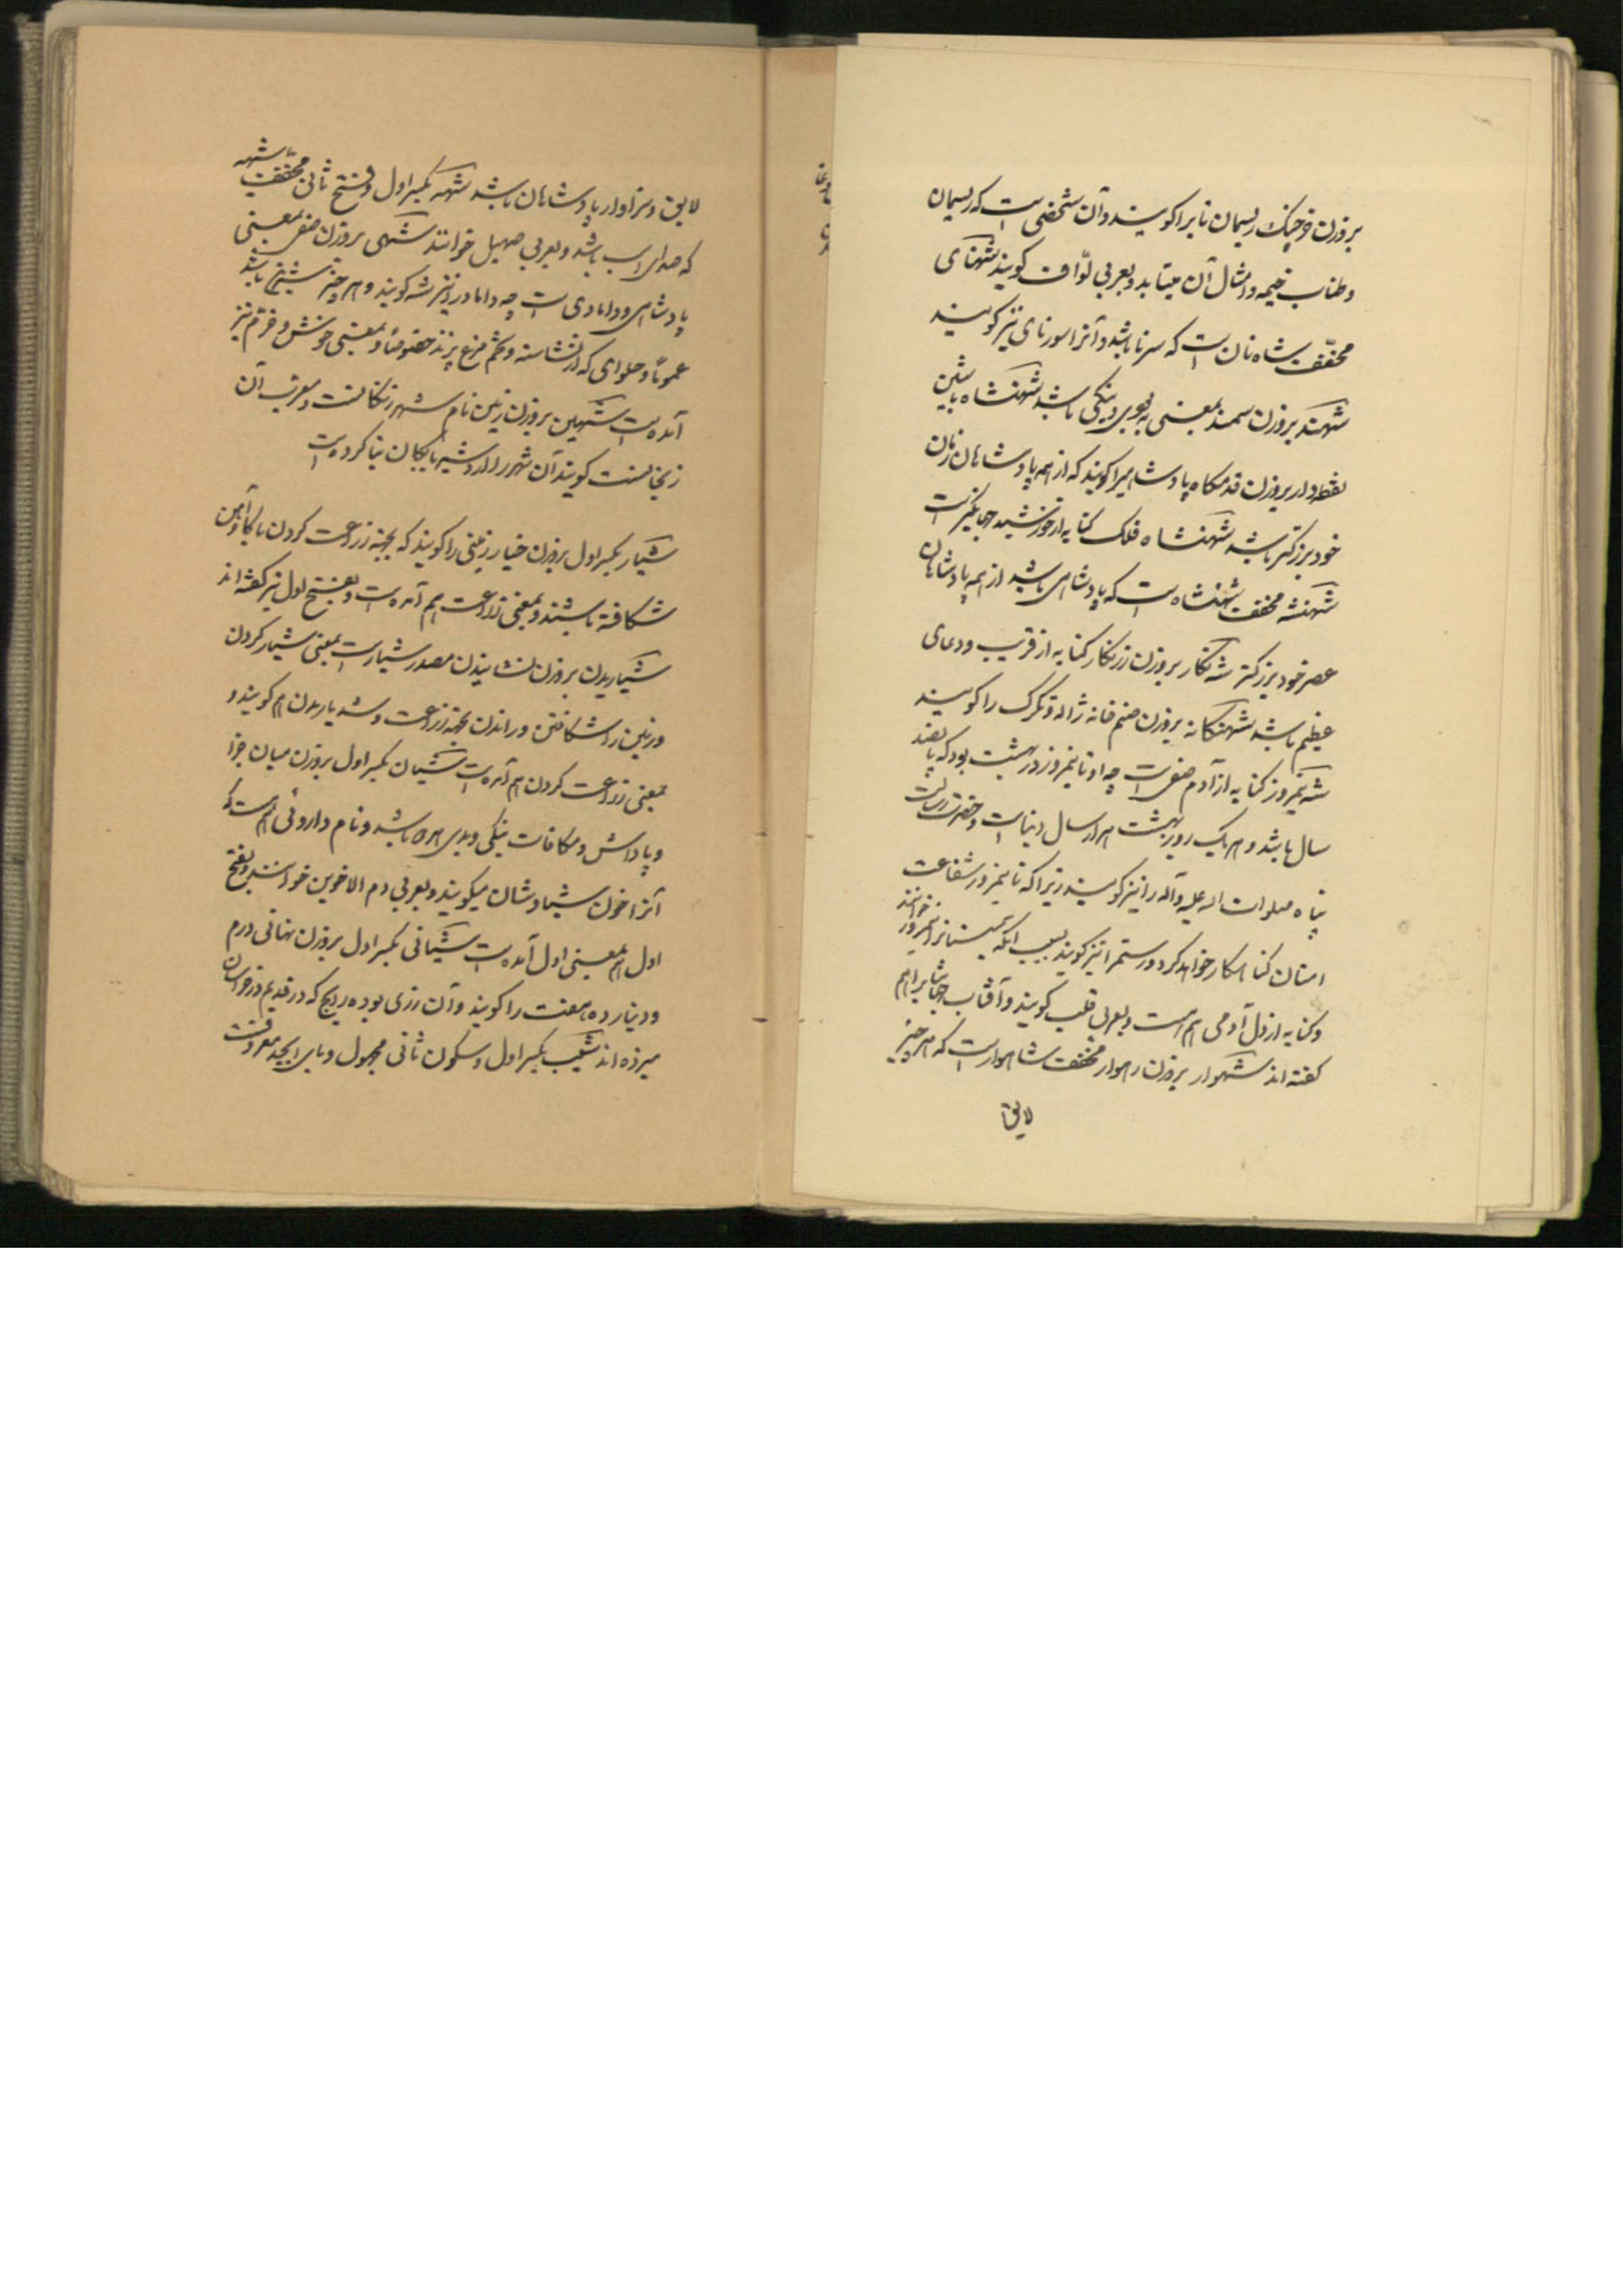 بروزن خرچنک ریسمان تابرا کویند و آن شخصی است که ریسمان
و طناب خیمه و امثال آن میتابد و بعربی لوّاف کویند شهنای
مخفّف شاه نای است که سرنا باشد و آنرا سورنای نیز کویند
شهند بروزن سمند بمعنی بهبود و نیکی باشد شهنشاه باشین
نقطه‌دار بروزن قدمکاه پادشاهیرا کویند که از همه پادشاهان زمان
خود بزرکتر باشد شهنشاه فلک کنایه از خورشید جهانکیر است
شهنشه مخفف شهنشاه است که پادشاهی باشد از همه پادشاهان
عصر خود بزرکتر شه نکار بروزن زرنکار کنایه از فریب و دغای
عظیم باشد شهنکانه بروزن صنم خانه ژاله و تکرک را کویند
شه نیمروز کنایه از آدم صفی است چه او تا نیمروز در بهشت بود که پانصد
سال باشد و هر یک روز بهشت هزار سال دنیاست و حضرت رسالت
پناه صلوات اله علیه و آله را نیز کویند زیرا که تا نیمروز شفاعت
امتان کناهکار خواهد کرد و رستم را نیز کویند بسبب آنکه سیستانرا نیمروز خوانند
و کنایه از دل آدمی هم هست و بعربی قلب کویند و آفتاب جهانتاب را هم
کفته‌اند شهوار بروزن رهوار مخفّف شاهوار است که هر چیز
لایق
لایق و سزاوار پادشاهان باشد شهه بکسر اول و فتح ثانی مخفّف شیهه
که صدای اسب باشد و بعربی صهیل خوانند شهی بروزن صفی بمعنی
پادشاهی و دامادی است چه داماد را نیز شه کویند و هر چیز شیرین باشد
عموماً و حلوای که از نشاسته و تخم مرغ پزند خصوصاً و بمعنی خوش و خرّم نیز
آمده است شهین بروزن زمین نام شهر زنکانست و معرب آن
زنجانست کویند آن شهر را اردشیر بابکان بنا کرده است
شیار بکسر اول بروزن خیار زمینی را کویند که بجهة زراعت کردن با کاو آهن
شکافته باشند و بمعنی زراعت هم آمده است و بفتح اول نیز کفته‌اند
شیاریدن بروزن نشانیدن مصدر شیار است بمعنی شیار کردن
و زمین را شکافتن و راندن بجهة زراعت و شدیاریدن هم کویند و
بمعنی زراعت کردن هم آمده است شیان بکسر اول بروزن میان جزا
و پاداش و مکافات نیکی و بدی هر دو باشد و نام داروئی هم هست که
آنرا خون سیاوشان میکویند و بعربی دم الاخوین خوانند و بفتح
اول هم بمعنی اول آمده است شیانی بکسر اول بروزن نهانی درم
و دینار ده هفت را کویند و آن زری بوده رایج که در قدیم در خراسان
میزده‌اند شیب بکسر اول و سکون ثانی مجهول و بای ابجد معروفست